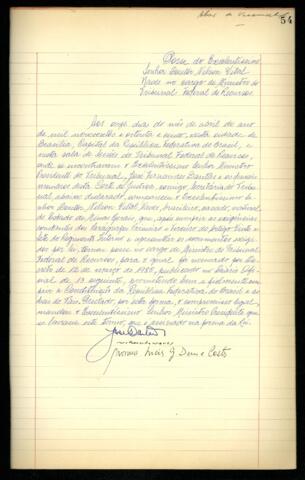 54
Posse do Excelentíssimo
Senhor Doutor Nelson Vital
Naves no cargo de Ministro do
Tribunal Federal de Recursos.
Aos onze dias do mês de abril do ano
de mil novecentos e oitenta e nesta cidade de
Brasília, Capital da República Federativa do Brasil, e
nesta sala de Sessões do Tribunal Federal de Recursos,
onde se encontravam o Excelentíssimo Senhor Ministro
Presidente do Tribunal, José Fernandes Dantas e os
desta Corte de Justiça, comigo Secretário do Tribu-
nal, abaixo declarado, compareceu o Excelentíssimo Se-
nhor Doutor Nelson Vital Naves, brasileiro, casado, natural
do Estado de Minas Gerais, que, após cumprir as exigências
contidas nos Parágrafos Primeiro e Terceiro do Artigo
do Regimento Interno e apresentar os documentos exigi-
dos por lei, tomou posse no cargo de Ministro do Tribunal
Federal de Recursos, para o qual foi nomeado por De-
creto de 12 de março de 1985, publicado no Diário Ofi-
cial de 13 seguinte, prometendo bem e fielmente cum-
prir a Constituição da República Federativa do Brasil e as
leis do País. Prestado, por esta forma, o compromisso legal,
mandou o Excelentíssimo Senhor Ministro Presidente que
se lavrasse este termo, que é assinado na forma da Lei.